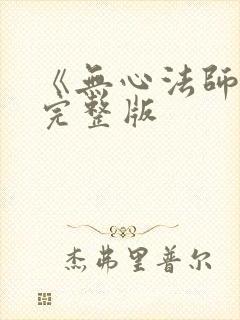 《無心法師
完整版
杰弗里普尔